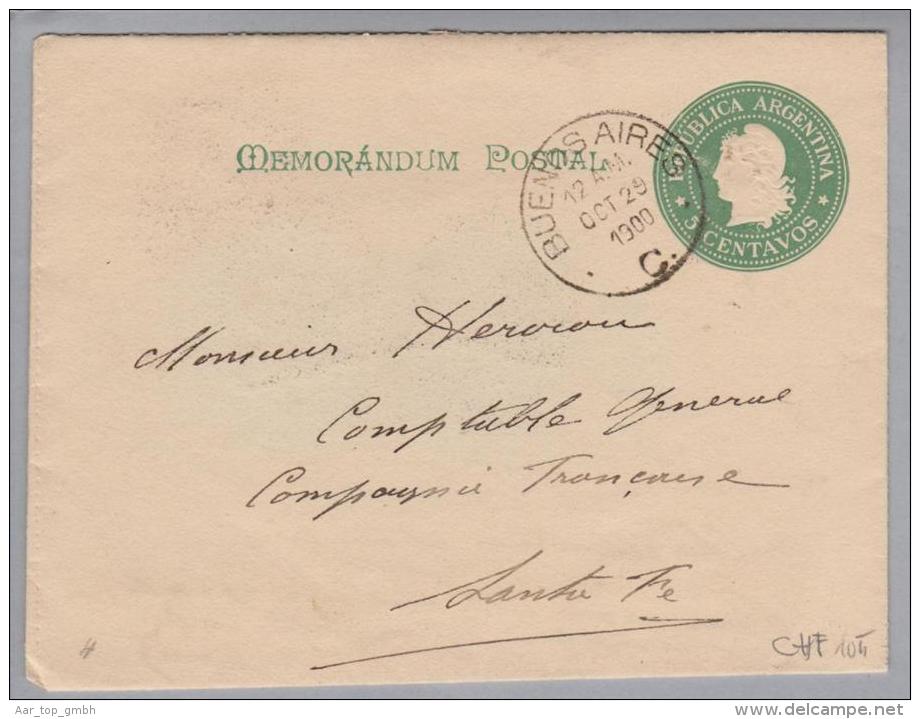 MEMORÁNDUM POSTAL
REPÚBLICA ARGENTINA
5 CENTAVOS
BUENOS AIRES
12 A.M.
OCT 29
1900
C
Monsieur
Comptable General
Compagnie Française
Santa Fe
4
CHF
Aar_top_gmbh
www.delcampe.net